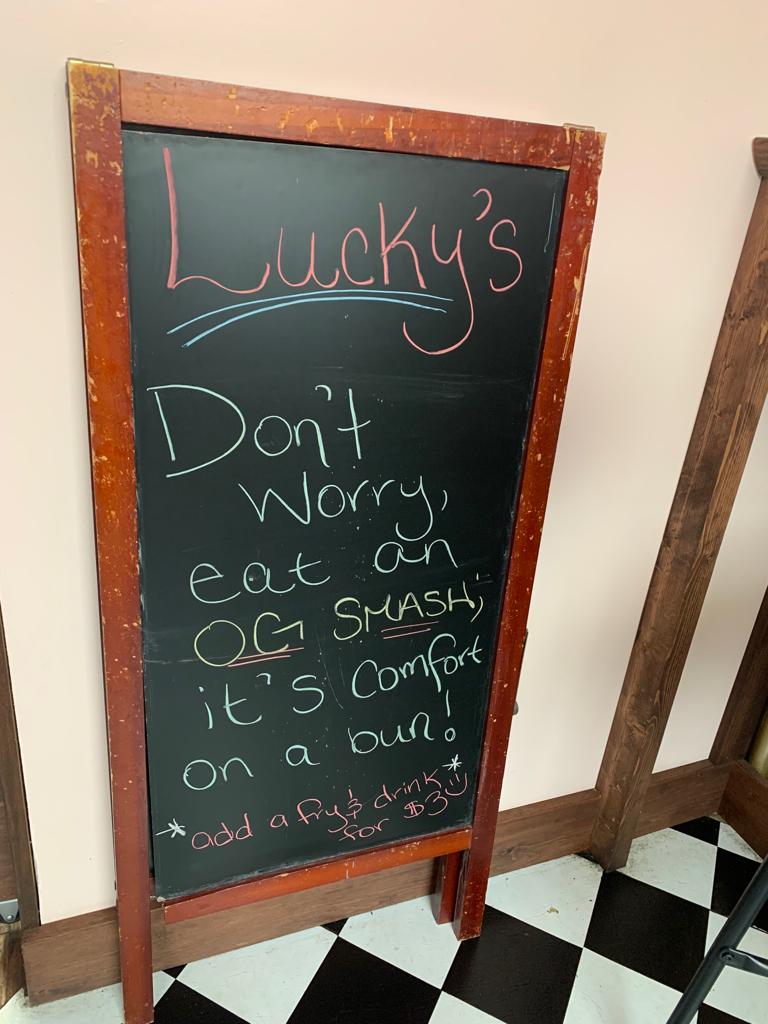 Lucky's
Don't
Worry,
eat an
OG SMASH,
it's Comfort
on a bun!
*add a fry & drink*
for $3 :)